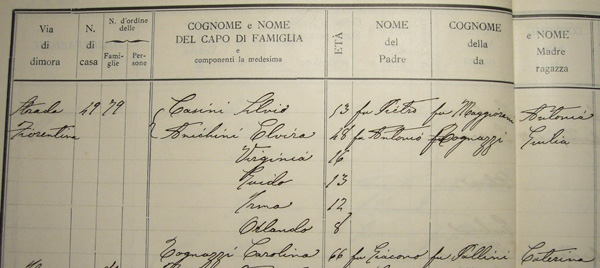 Via di dimora
N. di casa
N. d'ordine delle
Famiglie
Persone
COGNOME e NOME
DEL CAPO DI FAMIGLIA
e
componenti la medesima
ETÀ
NOME del Padre
COGNOME della da
e NOME Madre ragazza
Strada 29 79 Casini Silvio 53 fu Pietro fu Maggiorani Antonia
Fiorentina Anichini Elvira 48 fu Antonio fu Cognazzi Giulia
Virginia 16
Guido 13
Irma 12
Orlando 8
Cognazzi Carolina 66 fu Giacomo fu Pallini Caterina